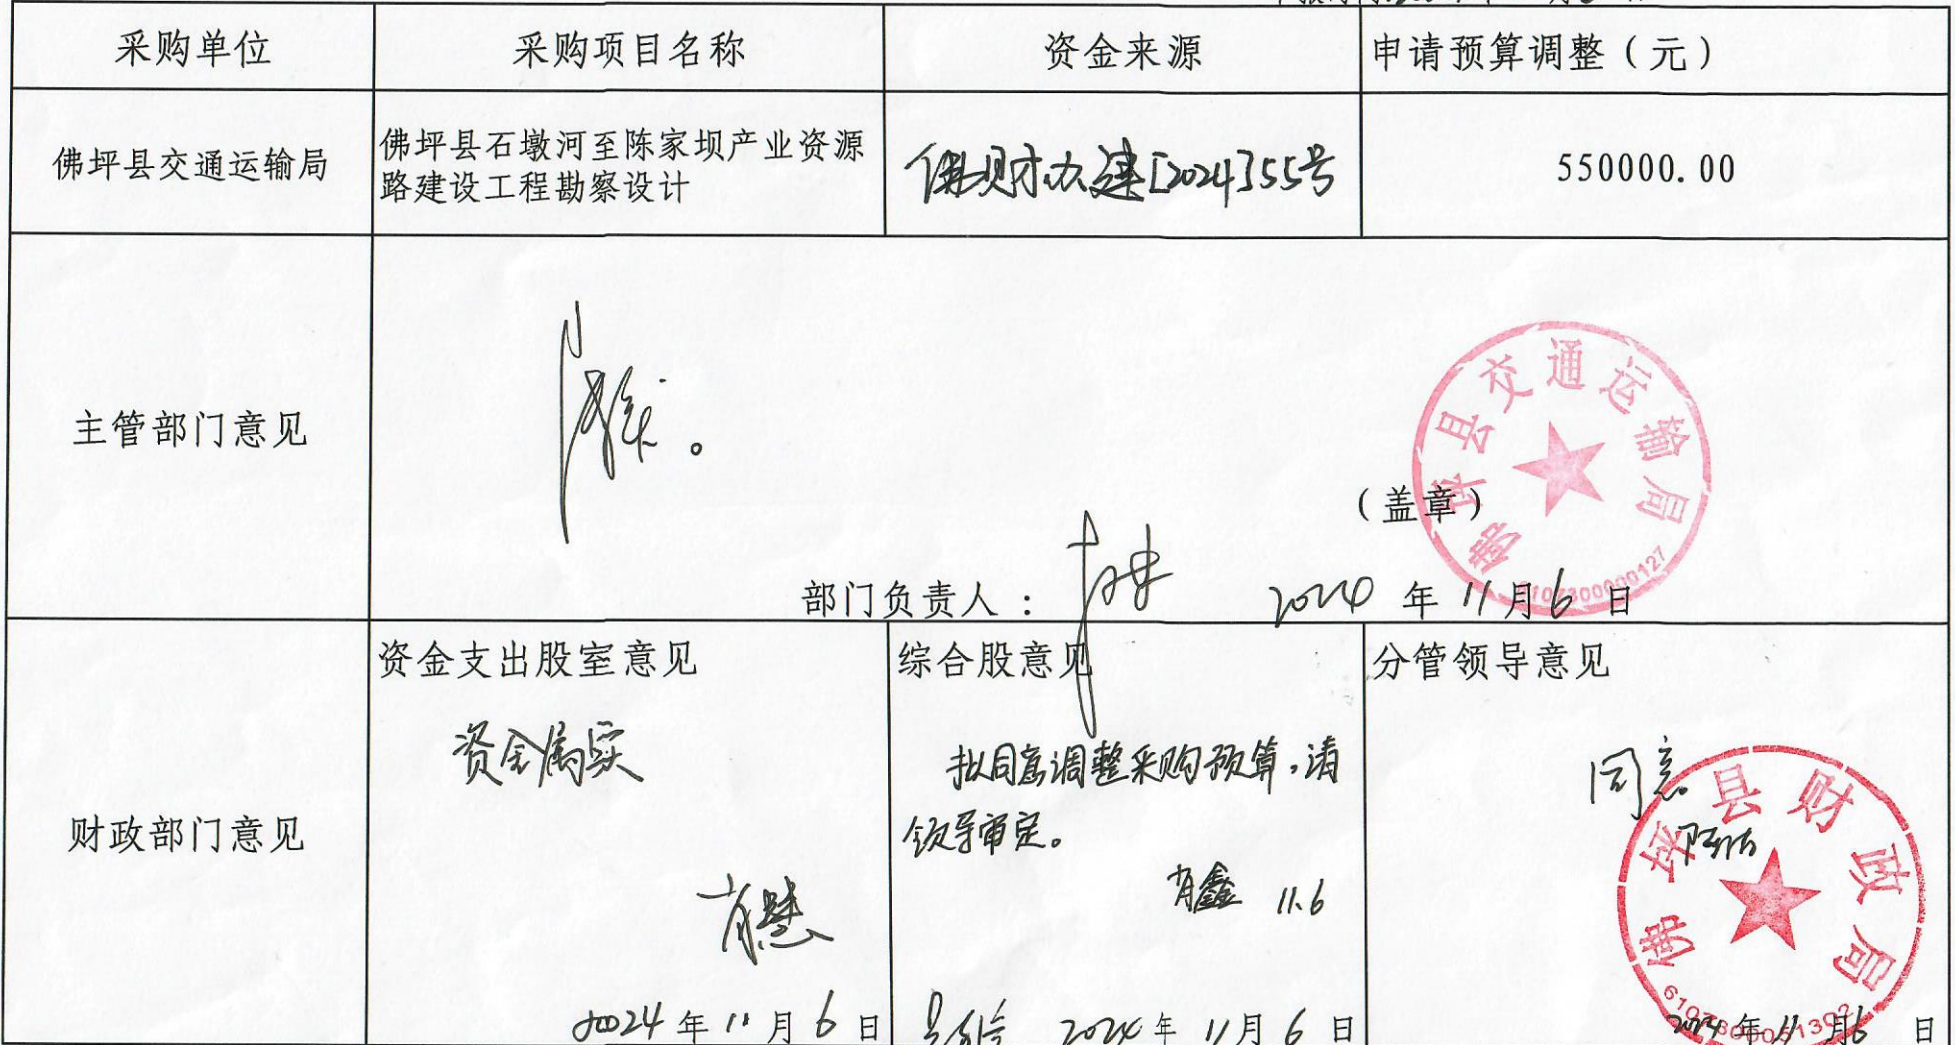 采购单位
采购项目名称
资金来源
申请预算调整（元）
佛坪县交通运输局
佛坪县石墩河至陈家坝产业资源
路建设工程勘察设计
佛财办建[2024]55号
550000.00
主管部门意见
佛坪县交通运输局
6107300000127
（盖章）
部门负责人：
2024年11月6日
财政部门意见
资金支出股室意见
资金属实
肖慧
2024年11月6日
综合股意见
拟同意调整采购预算，请
领导审定。
肖鑫 11.6
2024年11月6日
分管领导意见
同意
佛坪县财政局
6107300051302
2024年11月6日